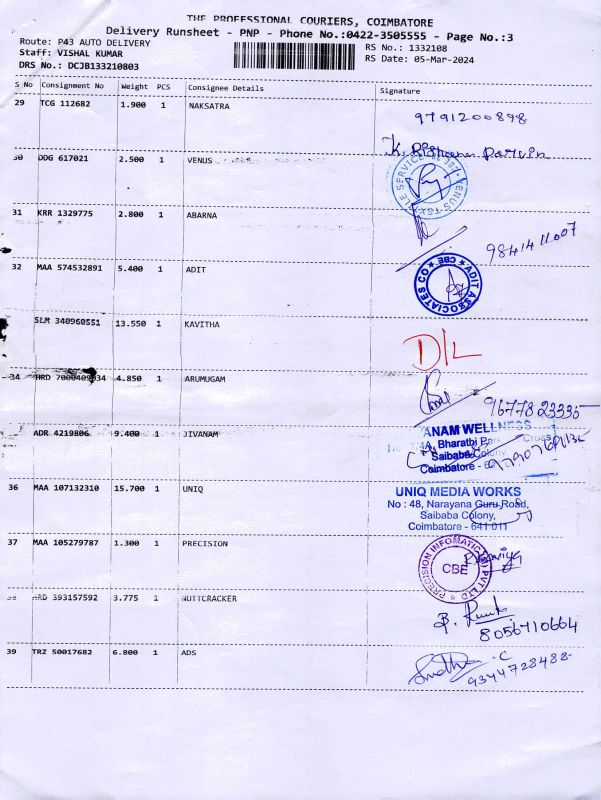 THE PROFESSIONAL COURIERS, COIMBATORE
Delivery Runsheet - PNP - Phone No.:0422-3505555 - Page No.:3
Route: P43 AUTO DELIVERY RS No.: 1332108
Staff: VISHAL KUMAR RS Date: 05-Mar-2024
DRS No.: DCJB133210803
S No Consignment No Weight PCS Consignee Details Signature
29 TCG 112682 1.900 1 NAKSATRA
9791200898
30 DDG 617021 2.500 1 VENUS
31 KRR 1329775 2.800 1 ABARNA
9841411007
32 MAA 574532891 5.400 1 ADIT
ADIT ASSOCIATES CO CBE
SLM 340960551 13.550 1 KAVITHA
D/L
34 HRD 4.850 1 ARUMUGAM
9677823335
ADR 4219806 9.400 1 JIVANAM
ANAM WELLNESS
Bharathi Cross
Saibaba Colony
Coimbatore - 6
36 MAA 107132310 15.700 1 UNIQ
UNIQ MEDIA WORKS
No : 48, Narayana Guru Road,
Saibaba Colony,
Coimbatore - 641 011
37 MAA 105279787 1.300 1 PRECISION
PRECISION INFOMATIC (M) PVT LTD
CBE
HRD 393157592 3.775 1 NUTTCRACKER
8056710664
39 TRZ 50017682 6.800 1 ADS
9344728488